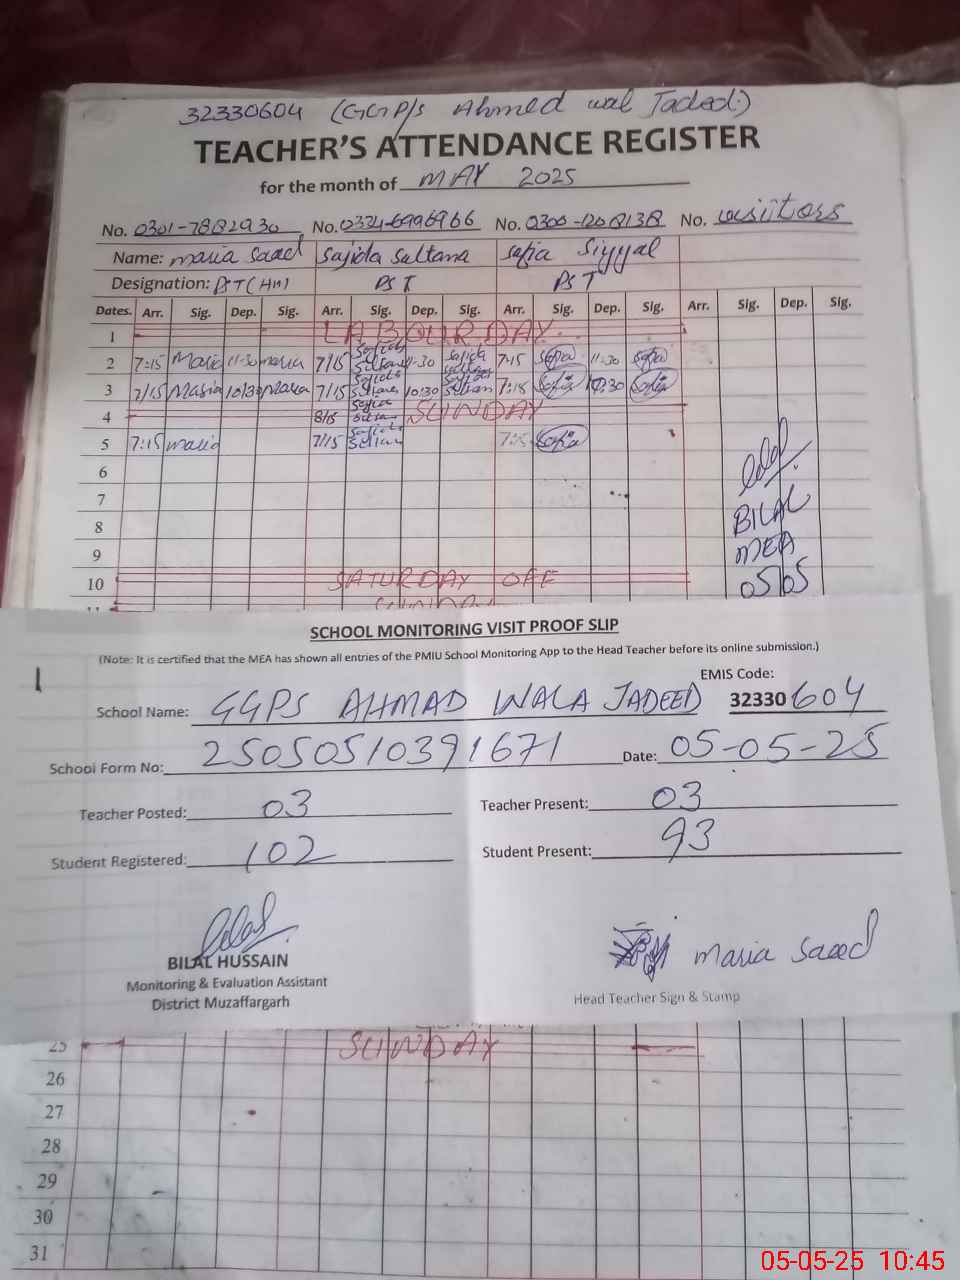 32330604 (GGP/s Ahmed wal Jaded.)
TEACHER'S ATTENDANCE REGISTER
for the month of MAY 2025
No. 0301-7882930 No. 0334-6996966 No. No. visiitors
Name: maria saad sajida sultana safia Siyyal
Designation: PST(HM) PST PST
Dates. Arr. Sig. Dep. Sig. Arr. Sig. Dep. Sig. Arr. Sig. Dep. Sig. Arr. Sig. Dep. Sig.
1 LABOUR DAY.
2 7:15 Maria 11:30 maria 7/15 Sajida Sultana 11:30 Sajida 7:15 Safia 11:30 Safia
3 7/15 Maria 10/30 Maria 7/15 Sajida 10:30 7:15 Safia 10:30 Safia
4 8/15 SUNDAY
5 7:15 maria 7/15 Sajida Sultan 7:15 Safia
6
7
8
9
10 SATURDAY OFF
11
BILAL
MEA
05/05
SCHOOL MONITORING VISIT PROOF SLIP
(Note: It is certified that the MEA has shown all entries of the PMIU School Monitoring App to the Head Teacher before its online submission.)
EMIS Code:
School Name: GGPS AHMAD WALA JADEED 32330604
School Form No: 25050510391671 Date: 05-05-25
Teacher Posted: 03 Teacher Present: 03
Student Registered: 102 Student Present: 93
BILAL HUSSAIN maria saeed
Monitoring & Evaluation Assistant
District Muzaffargarh Head Teacher Sign & Stamp
25 SUNDAY
26
27
28
29
30
31
05-05-25 10:45